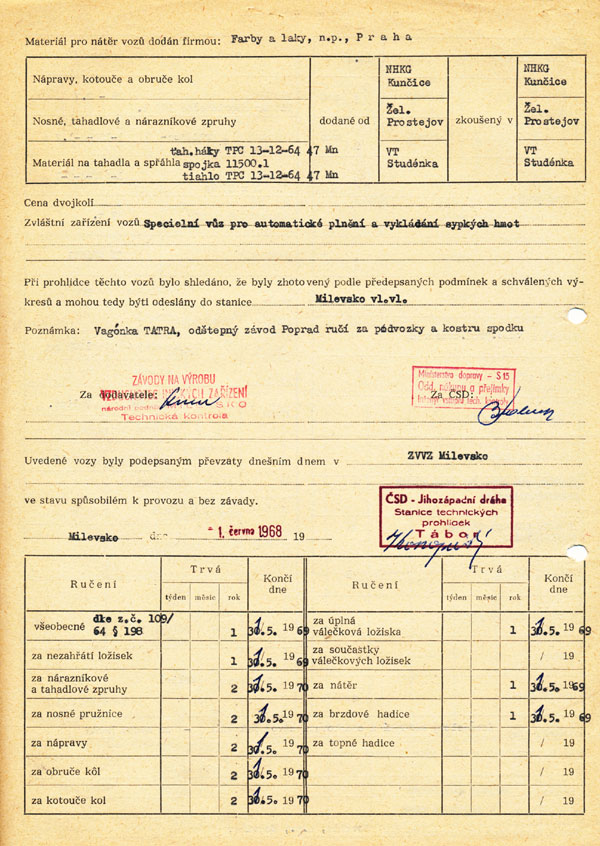 Materiál pro nátěr vozů dodán firmou: Farby a laky, n.p., Praha
Nápravy, kotouče a obruče kol
Nosné, tahadlové a nárazníkové zpruhy
tah.háky TPC 13-12-64 47 Mn
Materiál na tahadla a spřáhla spojka 11500.1
tiahlo TPC 13-12-64 47 Mn
dodané od
NHKG
Kunčice
Žel.
Prostejov
VT
Studénka
zkoušený v
NHKG
Kunčice
Žel.
Prostejov
VT
Studénka
Cena dvojkolí
Zvláštní zařízení vozů Specielní vůz pro automatické plnění a vykládání sypkých hmot
Při prohlídce těchto vozů bylo shledáno, že byly zhotoveny podle předepsaných podmínek a schválených vý-
kresů a mohou tedy býti odeslány do stanice Milevsko vl.vl.
Poznámka: Vagónka TATRA, odštepný závod Poprad ručí za podvozky a kostru spodku
ZÁVODY NA VÝROBU
ZAŘÍZENÍ
národní podnik
Technická kontrola
Za dodavatele:
Ministerstvo dopravy - S 15
Odd. nákupu a přejímky
Za ČSD:
Uvedené vozy byly podepsaným převzaty dnešním dnem v ZVVZ Milevsko
ve stavu způsobilém k provozu a bez závady.
Milevsko dne 1. června 1968 19
ČSD - Jihozápadní dráha
Stanice technických
prohlídek
Tábor
Ručení Trvá Končí dne Ručení Trvá Končí dne
týden měsíc rok týden měsíc rok
všeobecné dke z.č. 109/
64 § 198 1 31.5. 1969 za úplná
válečková ložiska 1 31.5. 1969
za nezahřátí ložisek 1 31.5. 1969 za součástky
válečkových ložisek / 19
za nárazníkové
a tahadlové zpruhy 2 31.5. 1970 za nátěr 1 31.5. 1969
za nosné pružnice 2 31.5. 1970 za brzdové hadice 1 31.5. 1969
za nápravy 2 31.5. 1970 za topné hadice / 19
za obruče kôl 2 31.5. 1970 / 19
za kotouče kol 2 31.5. 1970 / 19